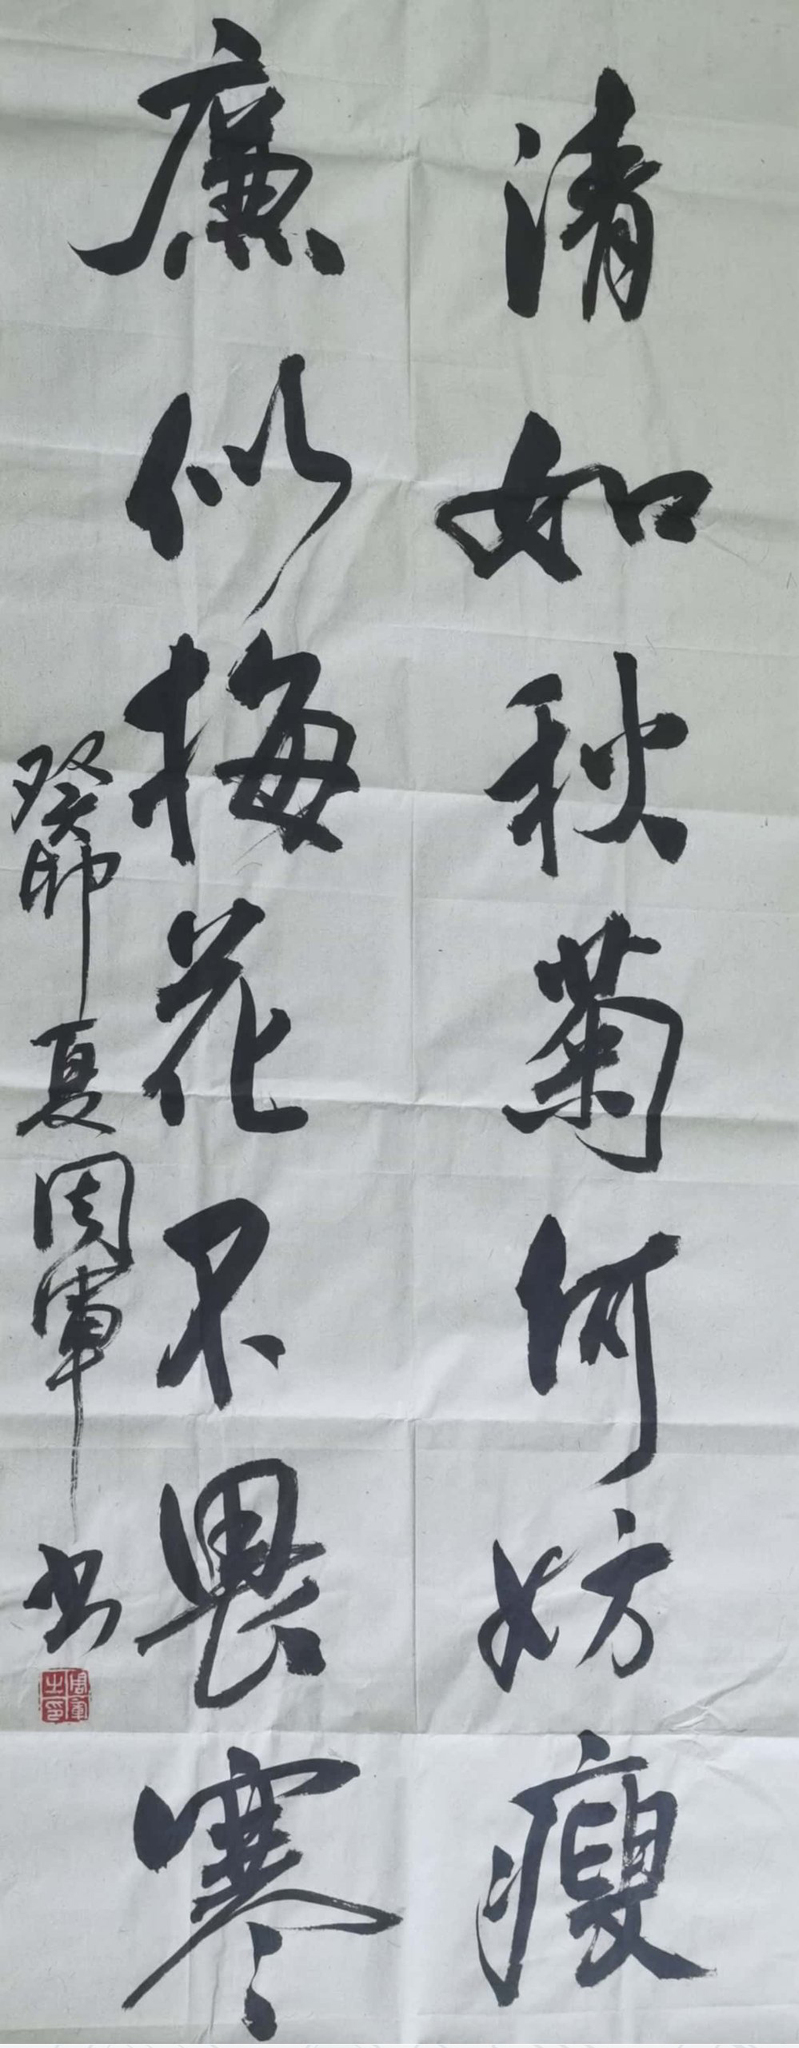 清如秋菊何妨瘦
廉似梅花不畏寒
癸卯夏周军书
周军之印